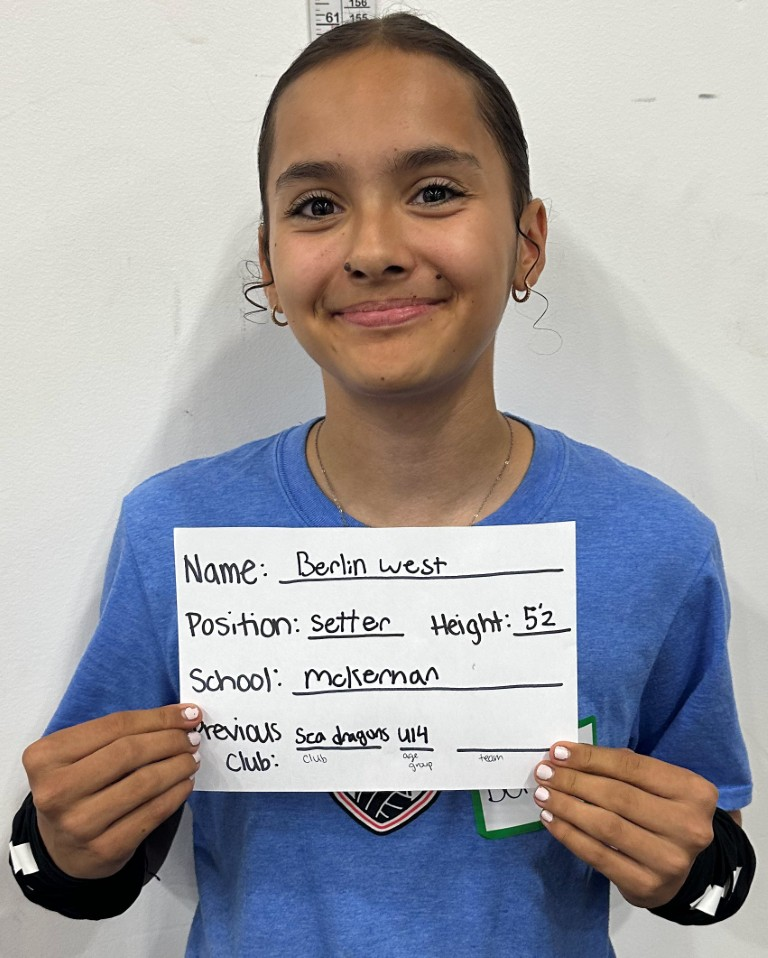 156
61 155
Name: Berlin west
Position: setter Height: 5'2
School: mckernan
Previous Sea dragons U14
Club: club age group team